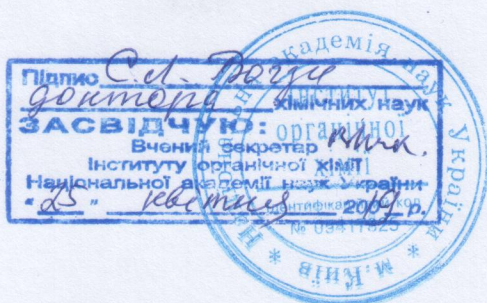 Підпис С.Л.
доктора хімічних наук
ЗАСВІДЧУЮ:
Вчений секретар
Інституту органічної хімії
Національної академії наук України
квітня 200 р.
академія наук України * м. Київ *
Інститут
органічної
хімії
Ідентифікаційний код
№